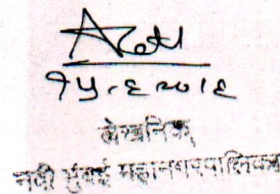 १५.६.२०१६
लेखनिक,
नवी मुंबई महानगरपालिका